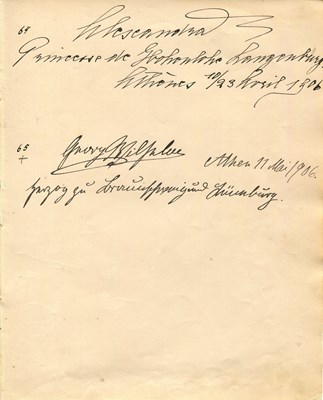 64 Alexandra
Princesse de Hohenlohe Langenburg
Athènes 10/23 Avril 1906
65
+
Georg Wilhelm Athen 11 Mai 1906.
Herzog zu Braunschweig und Lüneburg.